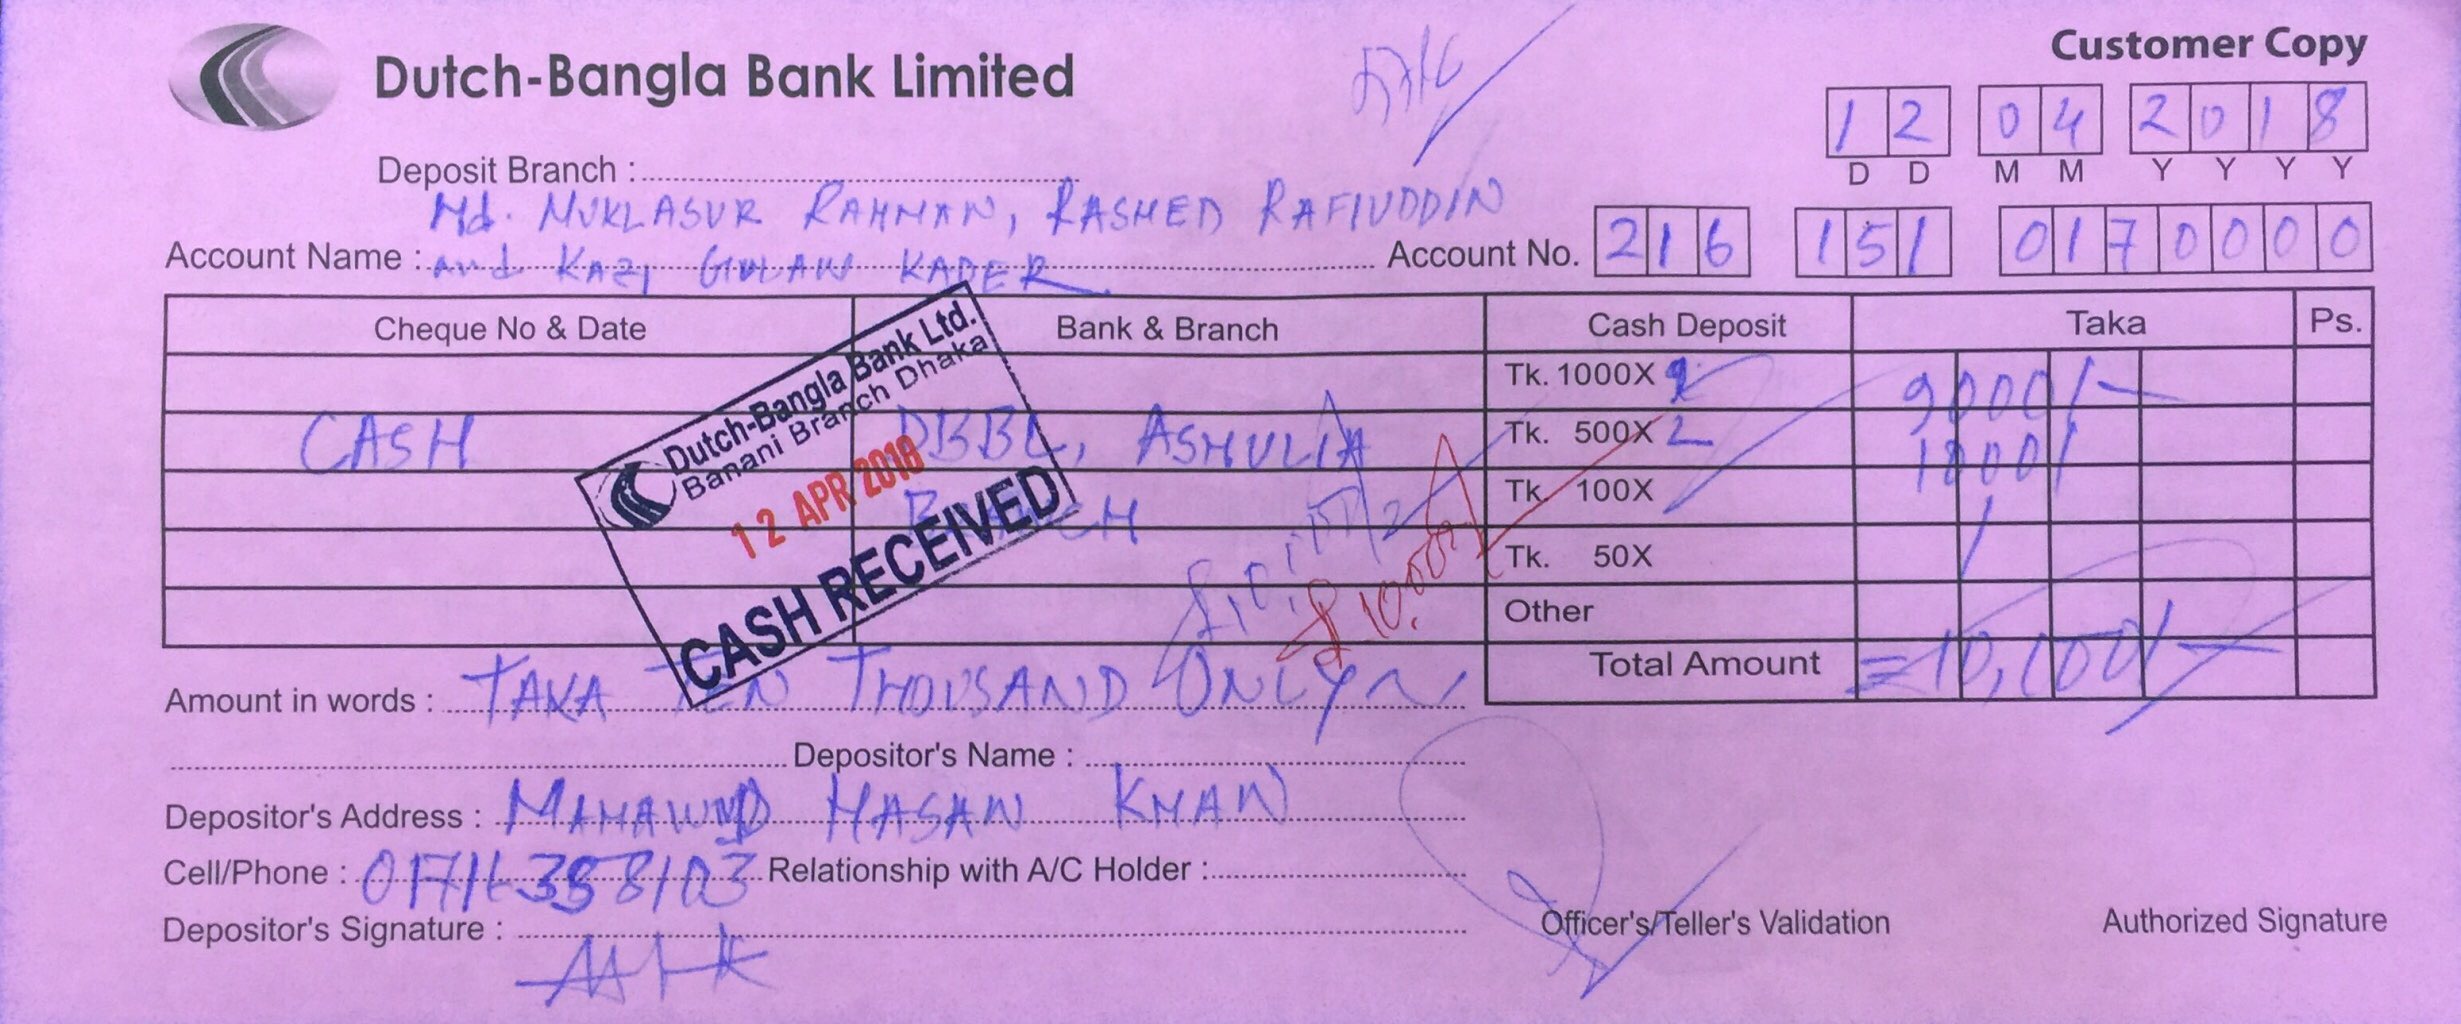 Dutch-Bangla Bank Limited
Customer Copy
12 04 2018
D D M M Y Y Y Y
Deposit Branch :
Md. MUKLASUR RAHMAN, RASHED RAFIUDDIN
Account Name : and KAZI GULAM KADER
Account No. 216 151 0170000
Cheque No & Date Bank & Branch Cash Deposit Taka Ps.
Tk. 1000X 9 9000/-
CASH DBBL, ASHULIA Tk. 500X 2 1000/
BRANCH Tk. 100X
Tk. 50X
Other
10,000/
Total Amount =10,000/-
Dutch-Bangla Bank Ltd.
Banani Branch Dhaka
12 APR 2018
CASH RECEIVED
Amount in words : TAKA TEN THOUSAND ONLY
Depositor's Name :
Depositor's Address : MAHAMUD HASAN KHAN
Cell/Phone : Relationship with A/C Holder :
Depositor's Signature :
Officer's/Teller's Validation Authorized Signature